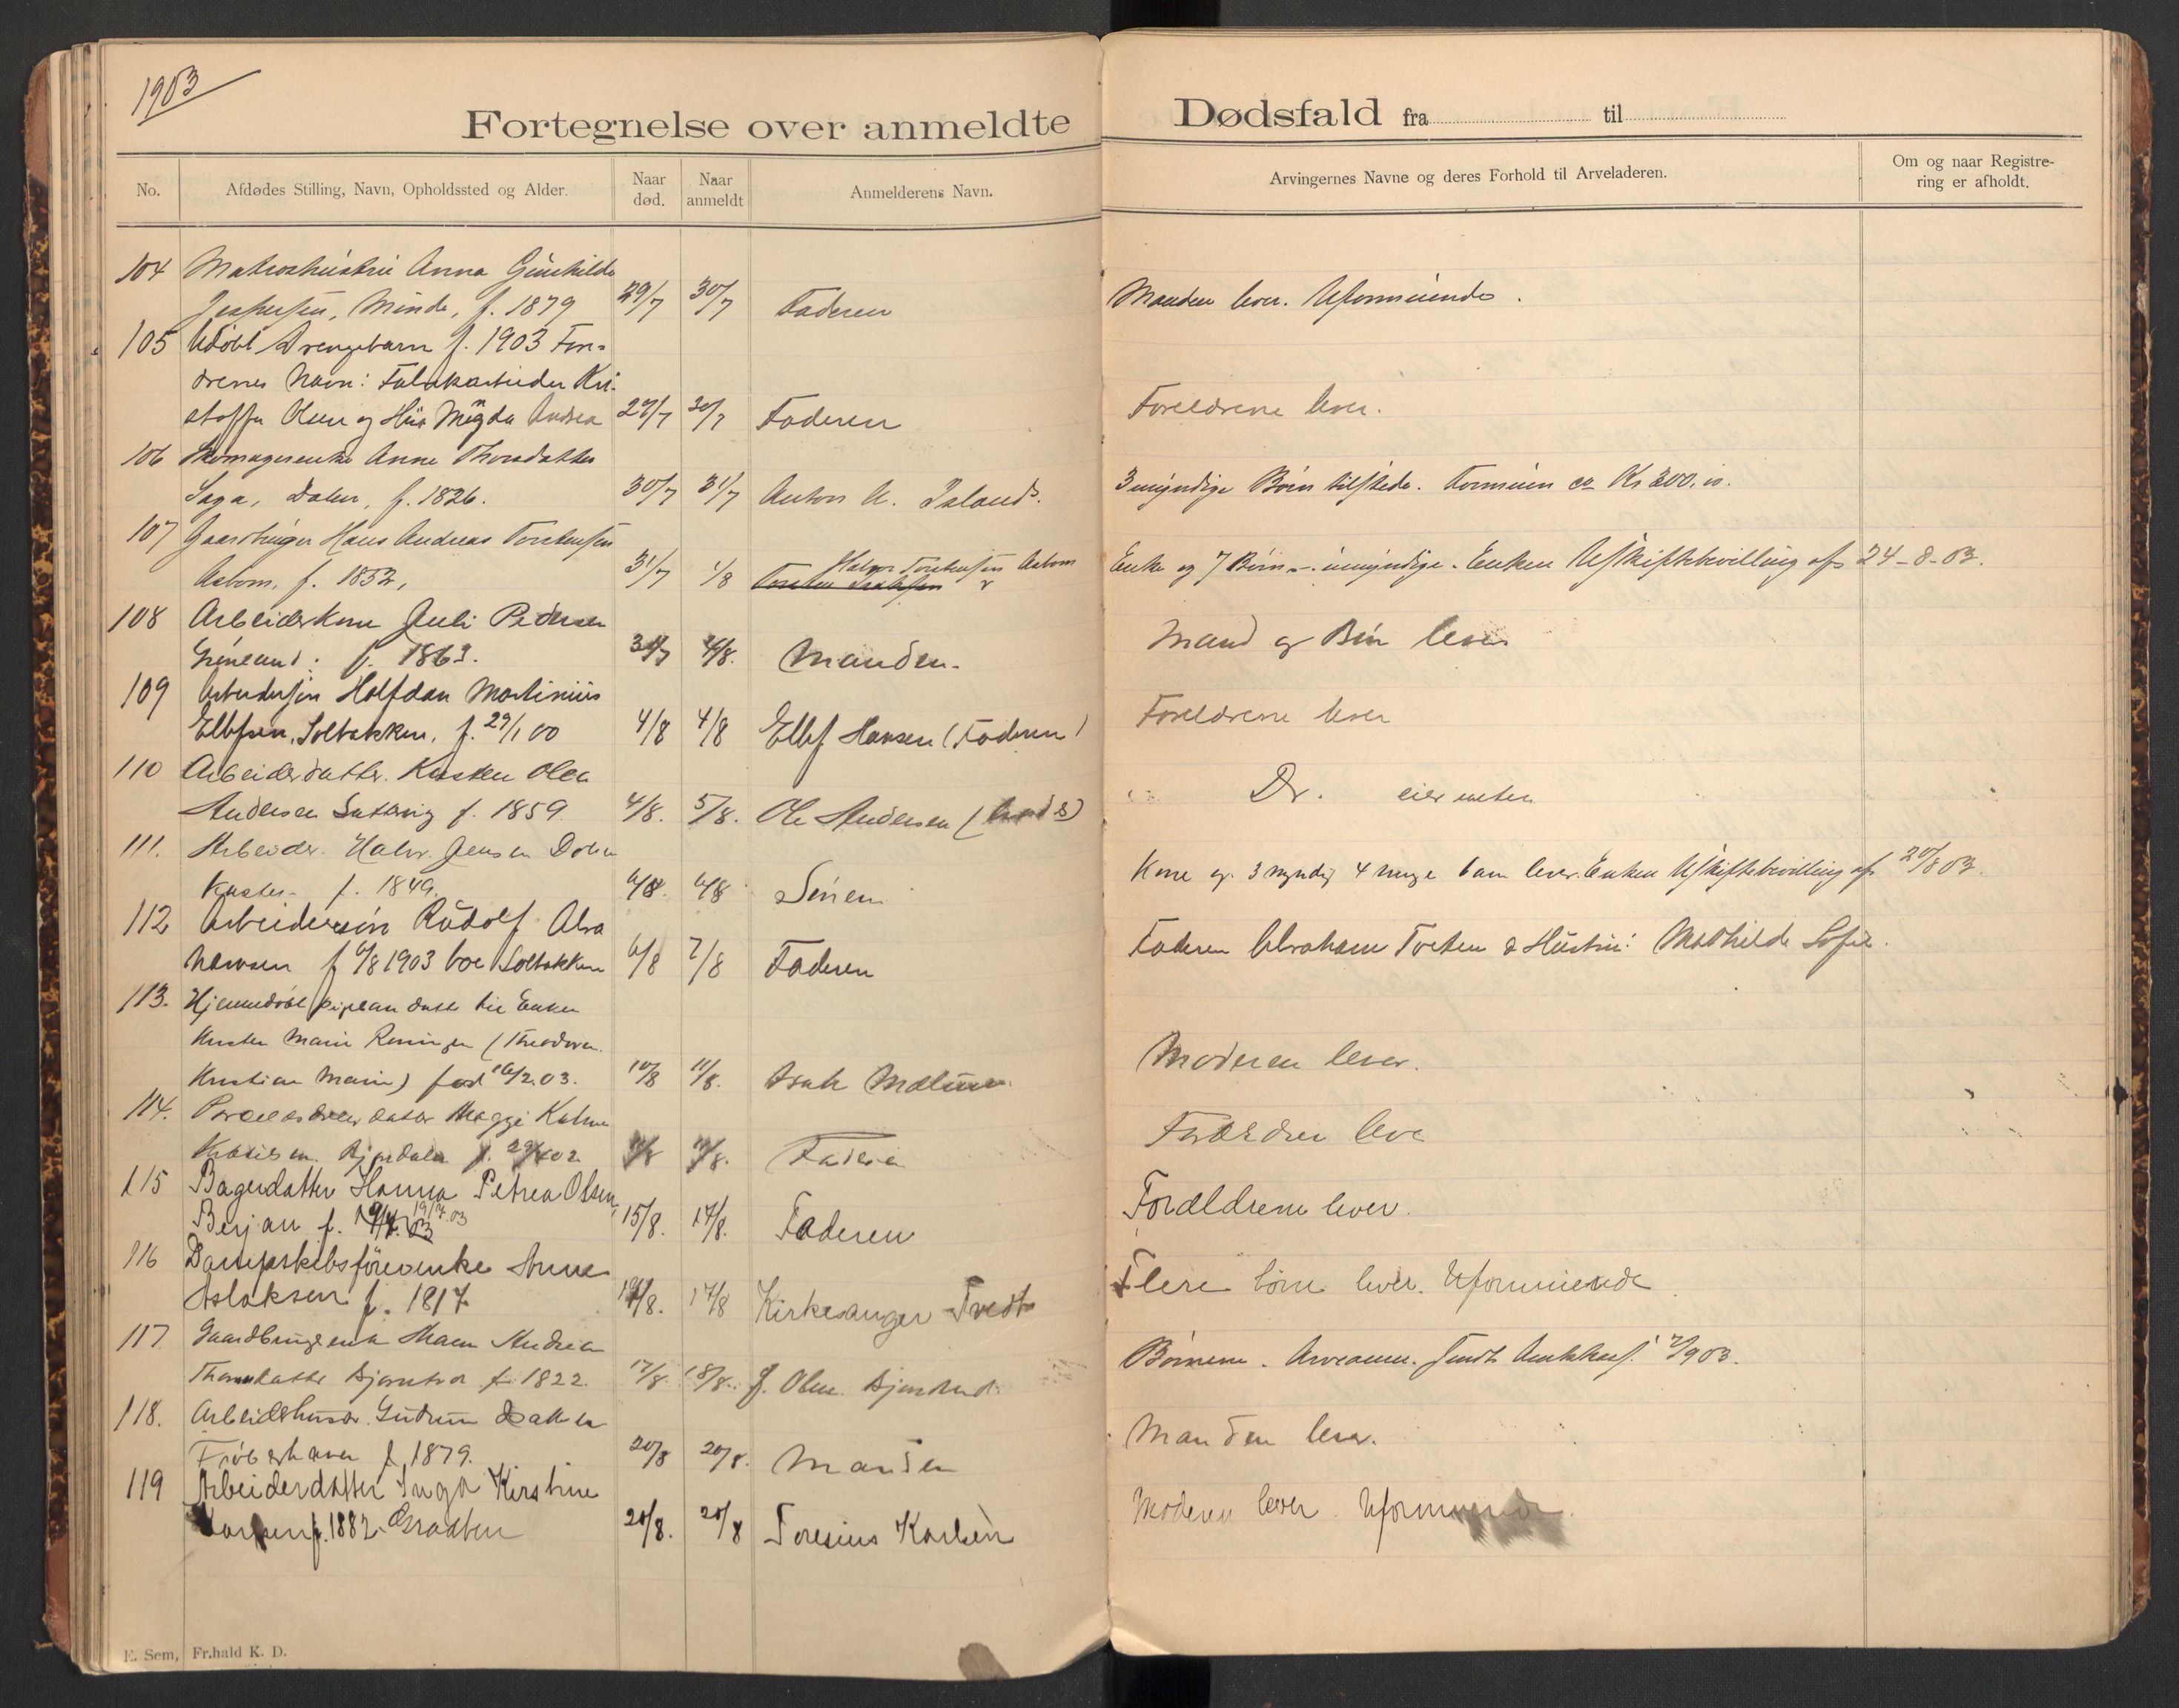 1903
Fortegnelse over anmeldte Dødsfald fra til
No.
Afdødes Stilling, Navn, Opholdssted og Alder.
Naar død.
Naar anmeldt
Anmelderens Navn.
Arvingernes Navne og deres Forhold til Arveladeren.
Om og naar Registre-
ring er afholdt.
104 Matroshustru Anna Gunhilde
Jespersen, Minde, f. 1879 29/7 30/7 Faderen Manden lever. Uformuende.
105 Udøbt Drengebarn f. 1903 For-
drenes Navn: Fabrikarbeider Kri-
stoffer Olsen og Hus Magda Andrea 27/7 30/7 Faderen Forældrene lever.
106 Skomagerenke Anne Thorsdatter
Saga, Dalen, f. 1826. 30/7 31/7 Anton A. Island. 3 myndige Børn tilstede. Formuen ca Kr 200.
107 Gaardbruger Hans Andreas Torstensen
Aabom, f. 1852, 31/7 1/8 Halvor Torstensen Aabom Enke og 7 Børn umyndige. Enken Uskiftebevilling af 24-8-03.
108 Arbeiderkone Juli Pedersen
f. 1863. 31/7 4/8. Manden. Mand og Børn lever
109 Arbeidersøn Halfdan Martinius
Ellefsen, Solbakken. f. 29/1 00 4/8 4/8 Ellef Hansen (Faderen) Forældrene lever
110 Arbeiderdatter. Kirsten Olea
Andersen f. 1859. 4/8. 5/8. Ole Andersen Do. eier intet
111. Arbeider. Halv. Jensen Dolva
f. 1849. 6/8. 6/8 Sønnen Kone og 3 myndig 4 umyn barn lever. Enken Uskiftebevilling af 20/8 03.
112 Arbeidersøn Rudolf Abra
hamsen f 6/8 1903 boe Solbakken 6/8 7/8 Faderen Faderen Abraham & Hustru: Mathilde Sofie.
113. Hjemmedøbt Pigebarn datt til Enken
Kirsten Marie (Theodora
Kristine Marie) fød 16/2.03. 10/8 11/8. Isak Mælum Moderen lever.
114. datter Maggi
f. 02 Faderen Forældre leve
115 Bagerdatter Hanna Petrea Olsen,
Berjan f. 19/7.03 15/8. 17/8. Faderen Forældrene lever.
116 Dampskibsførerenke Anne
Aslaksen f. 1817 /8. 17/8 Kirkesanger Tvedt Flere børn lever. Uformuende
117. Gaardbrugerenk Maren Andrea
Thorsdatter Bjørntvet f. 1822. 17/8. 18/8. J. Olsen Børnene. 2/9 03.
118. Arbeiderhustr. Gudrun
f. 1879. 20/8 20/8. Manden Manden lever.
119 Arbeiderdatter Inga Kirstine
Karlsen f. 1882. Graaten 20/8. 20/8 Toresius Karlsen Moderen lever. Uformuende.
E. Sem, Fr.hald K. D.